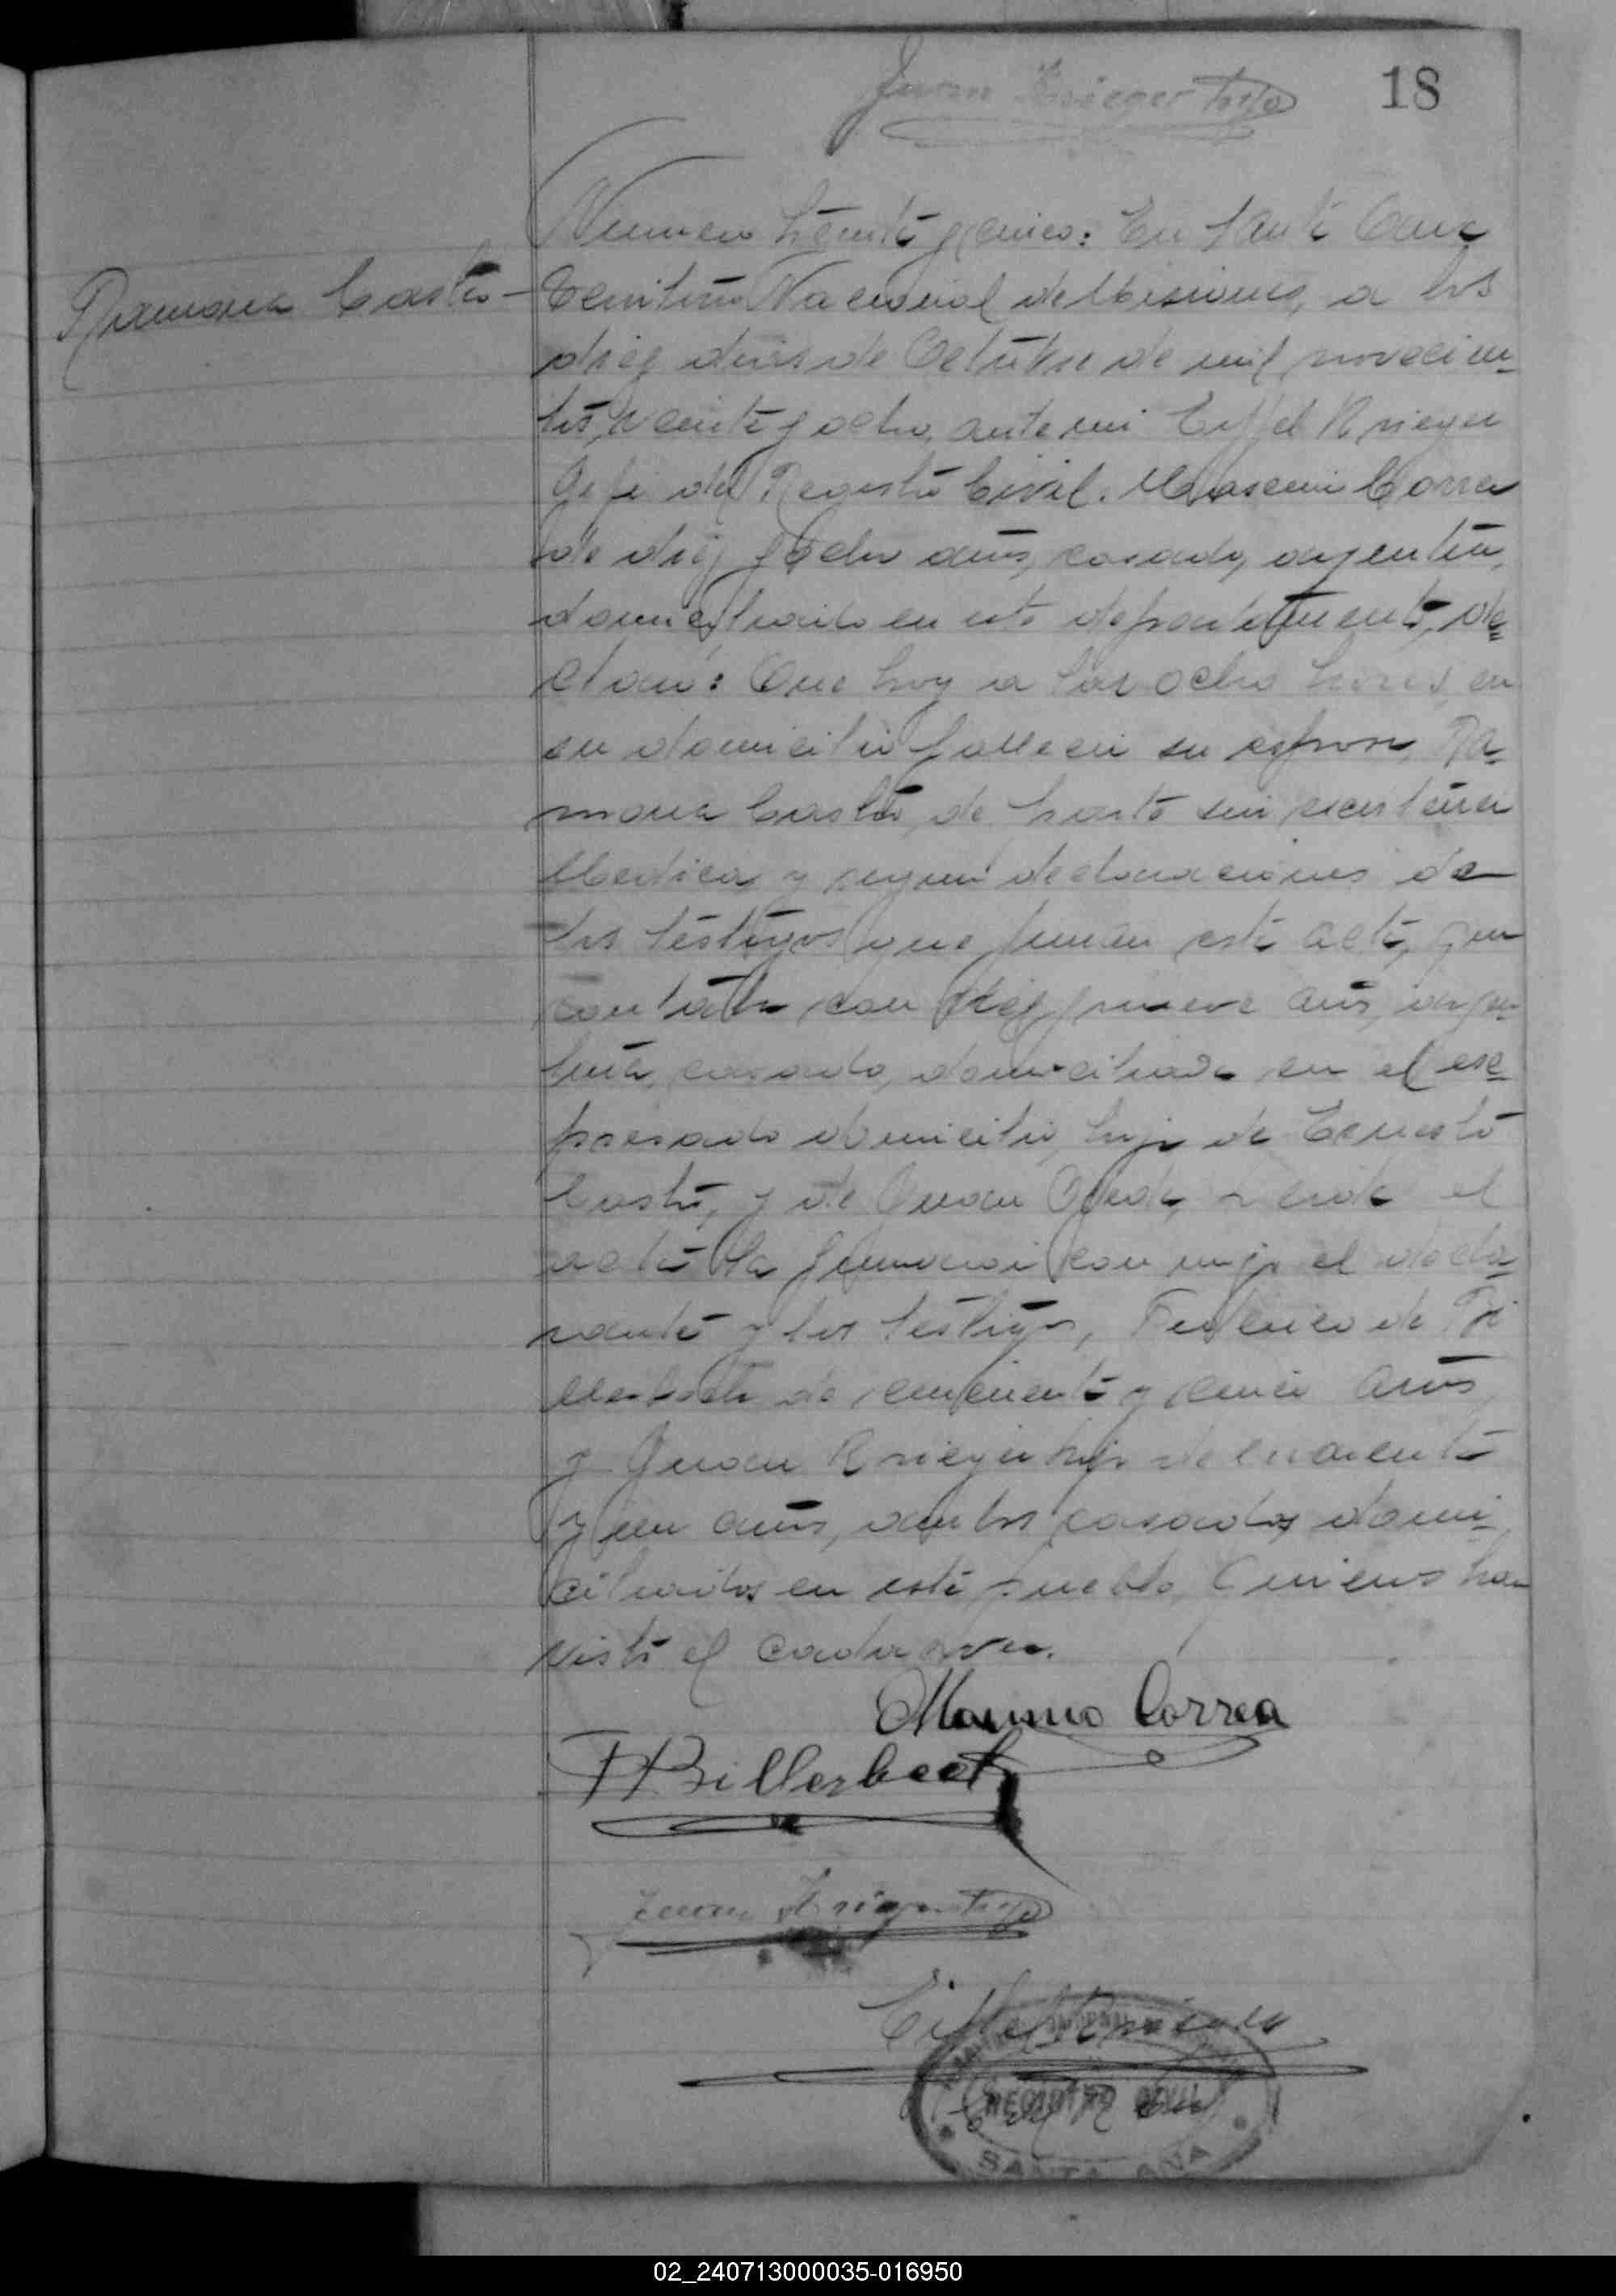 Juan Krieger hijo
18
Numero treinta y cinco: En Santa Ana
Ramona Castro
Territorio Nacional de Misiones, a los
diez dias de Octubre de mil novecien-
tos veinte y ocho, ante mi Eiffel Krieger
Gefe del Registro Civil. Maximi Correa
de diez y ocho años, casado, argentino,
domiciliado en este departamento, de-
claró: Que hoy a las ocho horas, en
su domicilio falleció su esposa, Ra-
mona Castro, de parto sin asistencia
Medica, y segun declaraciones de
los testigos que firman esta acta, que
contaba con diez y nueve años, argen-
tina, casada, domiciliada en el ex-
presado domicilio, hija de Ernesto
Castro, y de Juana Ojeda, Leida el
acta la firmaron conmigo el decla-
rante y los testigos, Federico de Bi
llerbeck de cincuenta y cinco años
y Juan Krieger hijo de cuarenta
y un años, ambos casados, domi-
ciliados en este pueblo, Quienes han
visto el cadaver.
Maximo Correa
F Billerbeck
Juan Krieger hijo
Eiffel Krieger
REGISTRO CIVIL
SANTA ANA
02_240713000035-016950